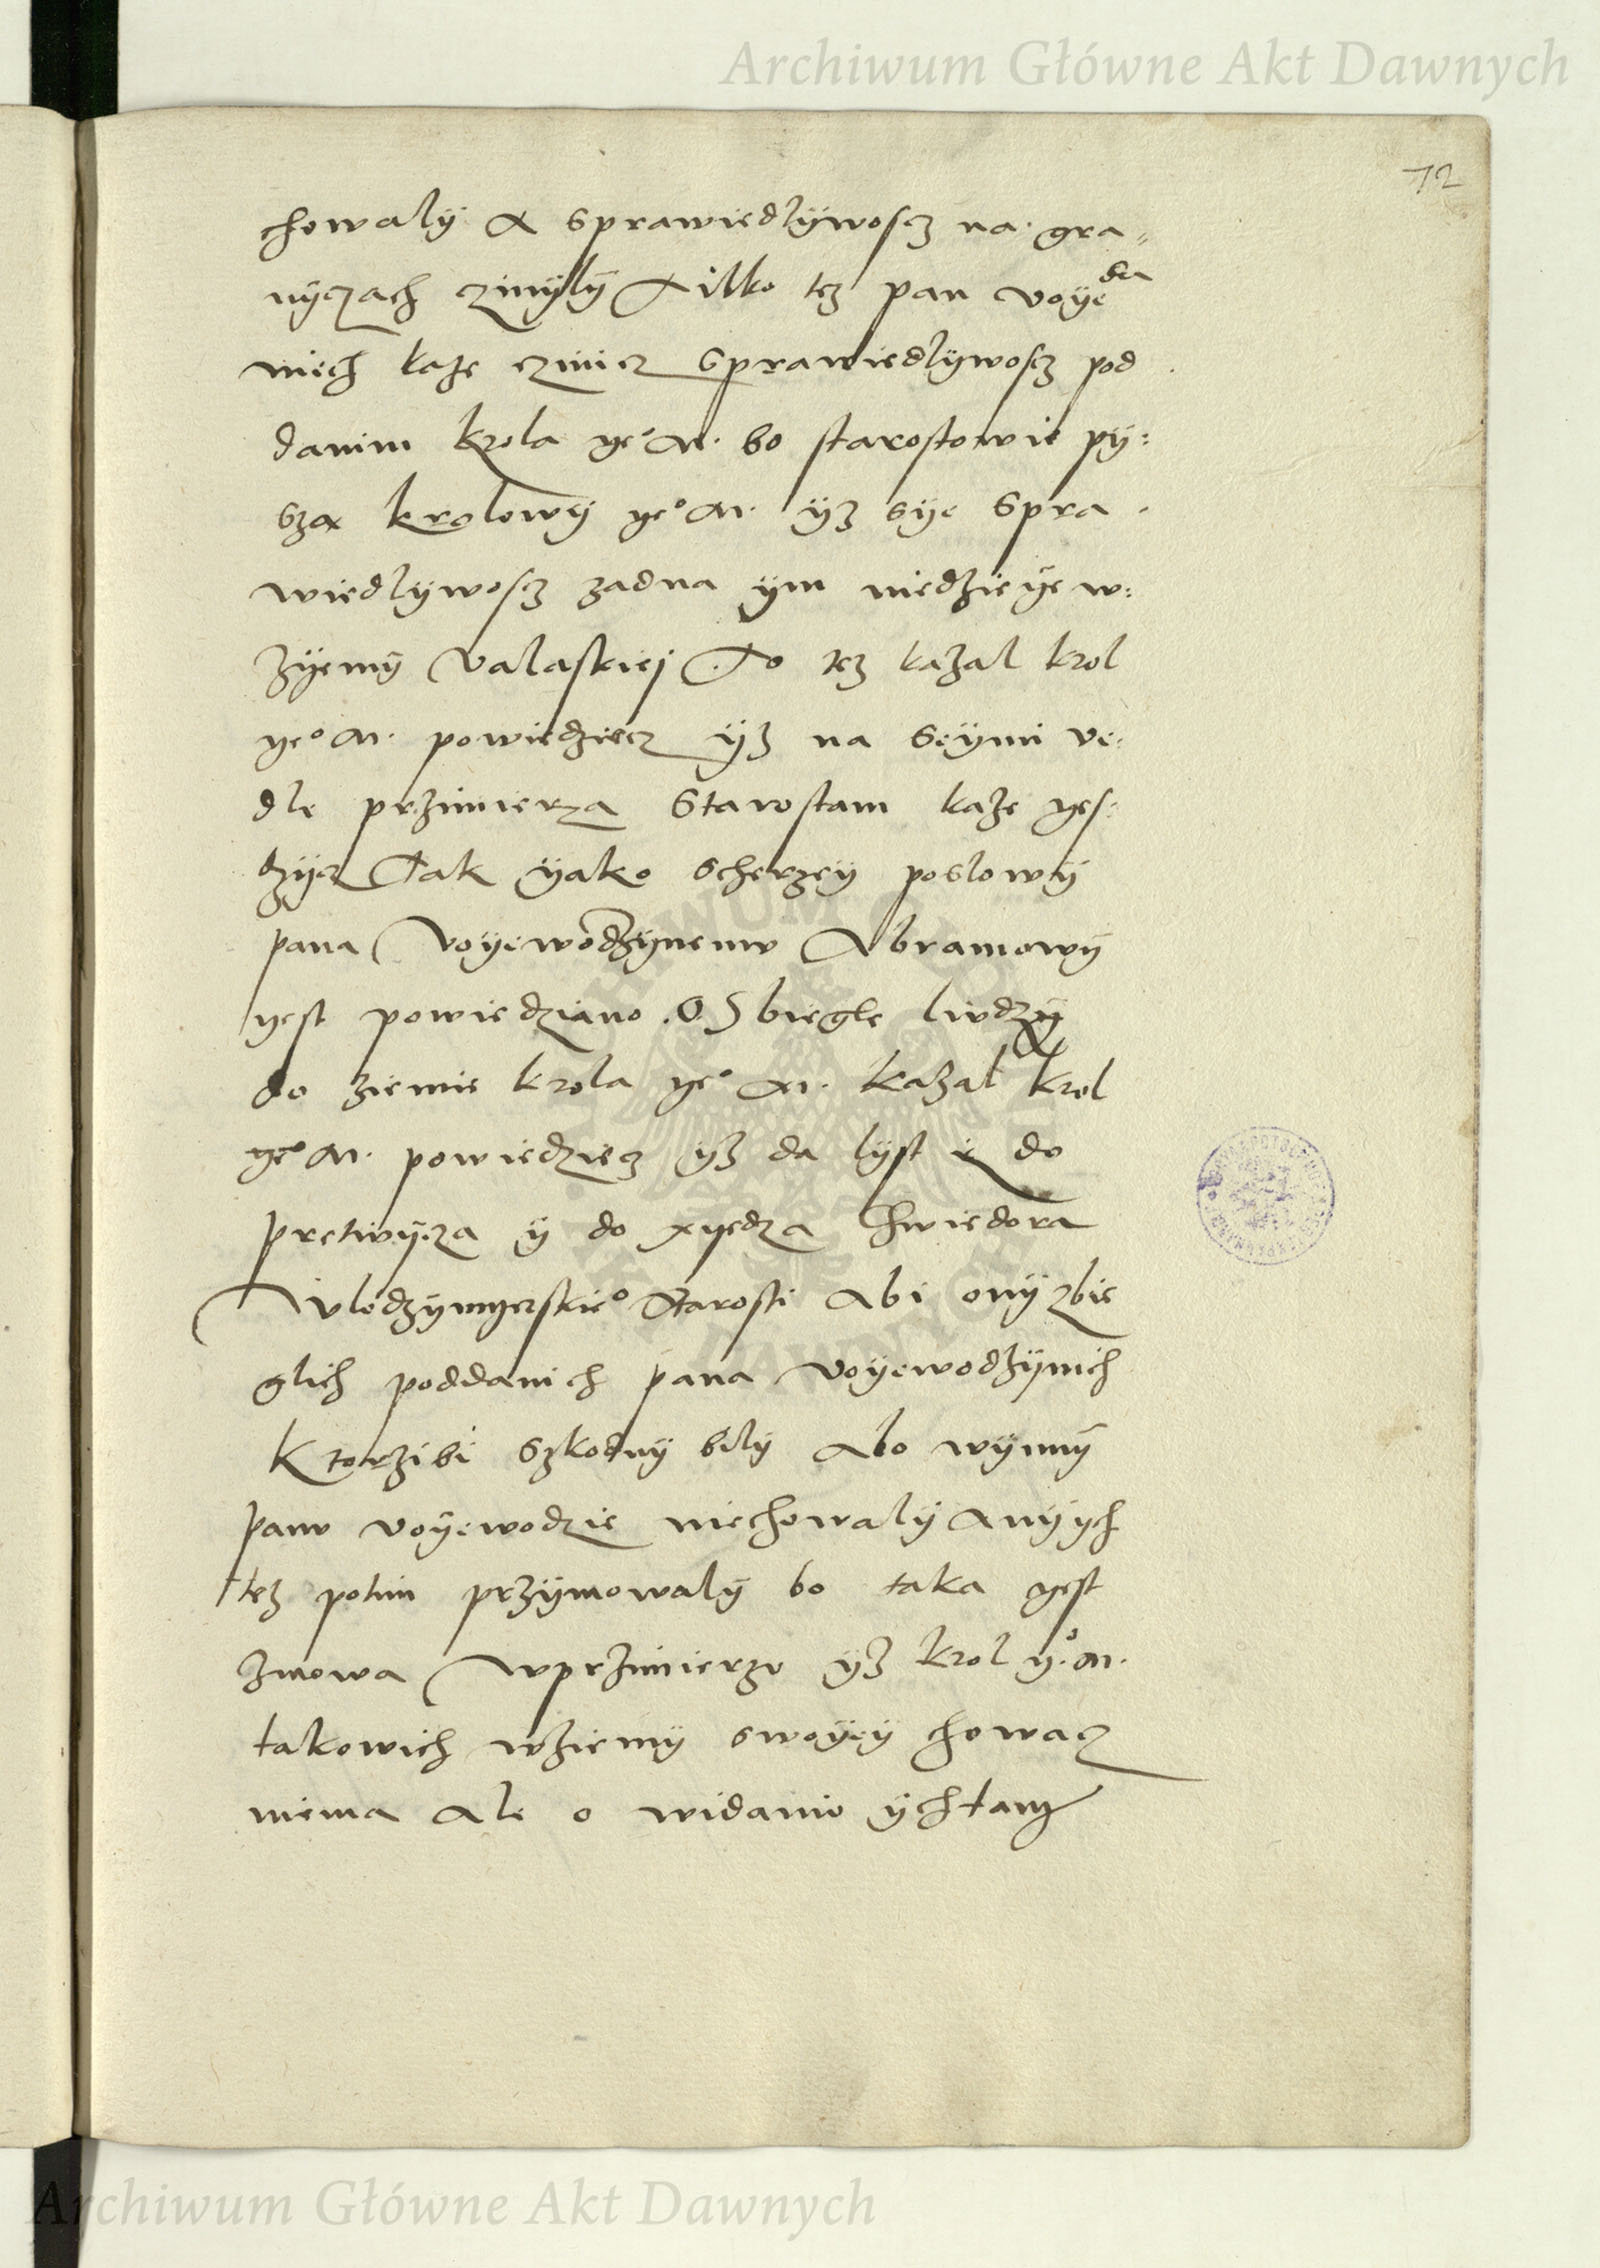 Archiwum Główne Akt Dawnych
72
chowaly a sprawiedlywoscz na gra„
nyczach czinyly Tilko tez pan voyeda
niech kaze czinicz sprawiedlywoscz pod
danim krola ye° M. bo starostowie py:
sza krolowy ye° M. yz sye spra
wiedlywoscz zadna ym niedzieye w:
zyemy valaskiej To tez kazal krol
ye° M. powiedziecz yz na seymi ve:
dle przimierza Starostam kaze yes:
dzycz Tak yako scherzey poslowy
pana voyewodzynemv Abramowy
yest powiedziano. O Sbiegle livdzy
do ziemie krola ye° M. kazal krol
ye° M. powiedziecz yz da lyst i do
pretwycza y do xyedza Chwiedora
Vlodzymyerskie° Starosti Abi ony zbie
glich poddanich pana voyewodzynich
Ktorzibi szkodny bily Abo wynny
panv voyewodzie niechowaly Any ych
tez potim przymowaly bo taka yest
zmowa wprzimierzv yz krol y° M.
takowich wziemy swoyey chowacz
niema Ale o widanie ych tam
Archiwum Główne Akt Dawnych